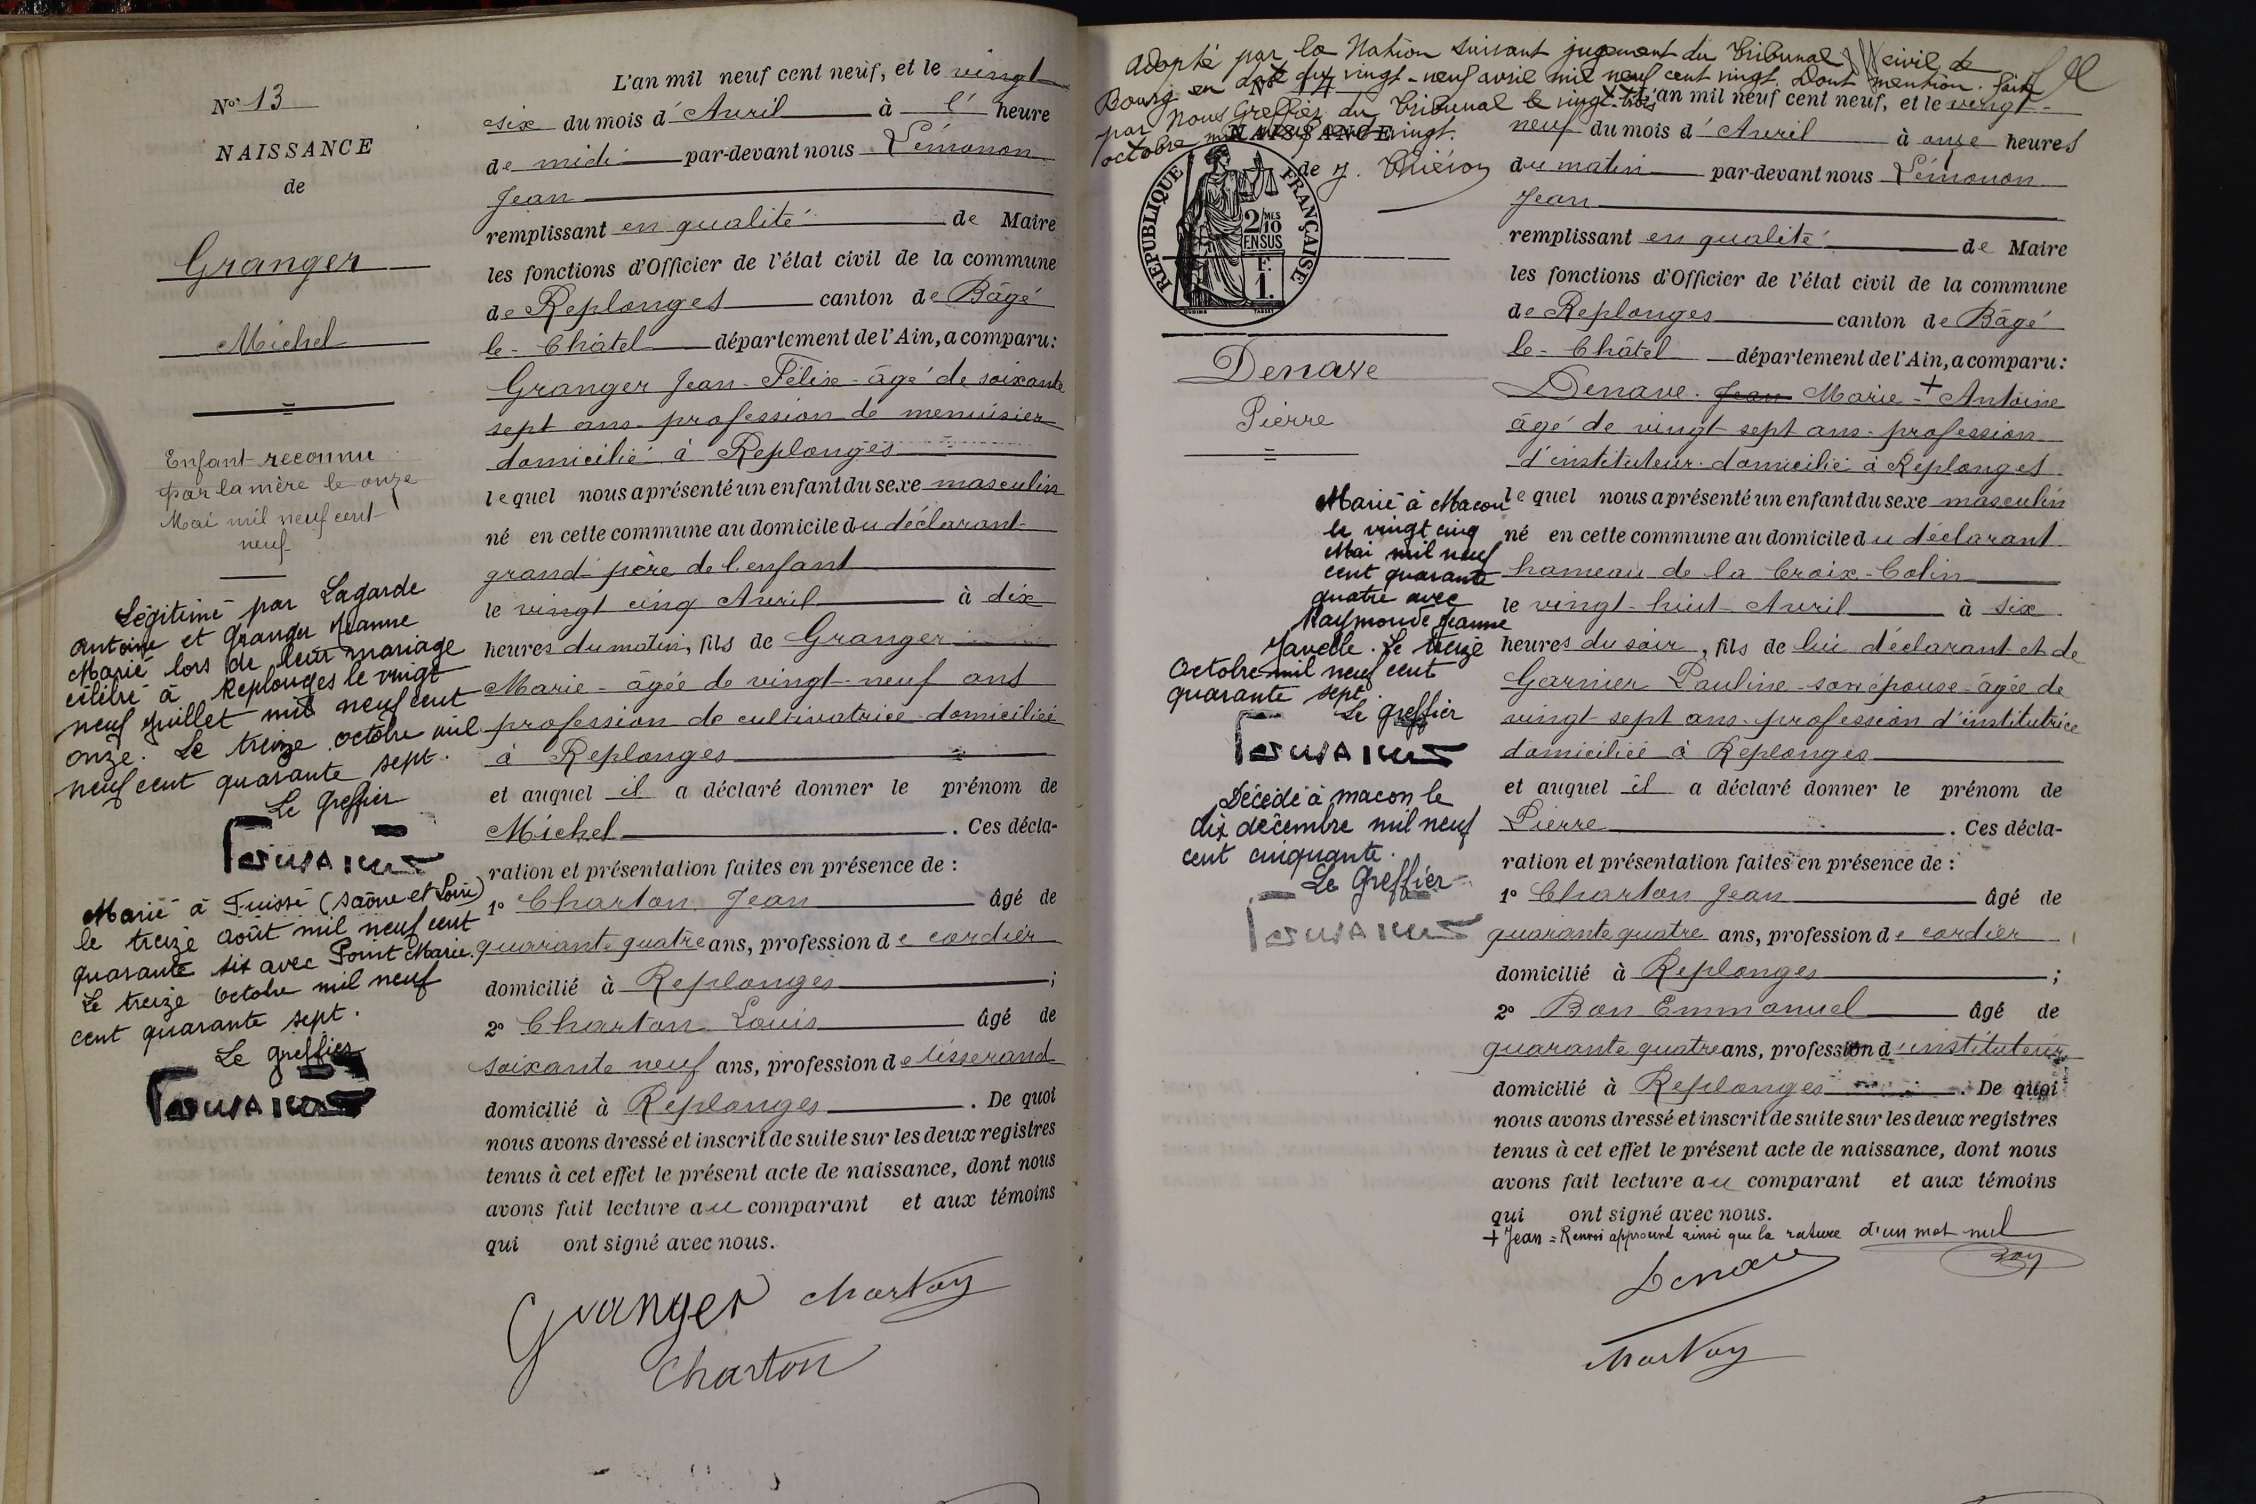 N° 13
NAISSANCE
de
Granger
Michel
Enfant reconnu
par la mère le onze
Mai mil neuf cent
neuf
Légitimé par Lagarde
Antoine et Granger Jeanne
Marie lors de leur mariage
célébré à Replonges le vingt
neuf juillet mil neuf cent
onze. Le treize octobre mil
neuf cent quarante sept.
Le Greffier
Marié à Fuissé (Saône et Loire)
le treize août mil neuf cent
quarante six avec Point Marie.
Le treize octobre mil neuf
cent quarante sept.
Le greffier
L'an mil neuf cent neuf, et le vingt
six du mois d'Avril à l' heure
de midi par-devant nous Lémonon
Jean
remplissant en qualité de Maire
les fonctions d'Officier de l'état civil de la commune
de Replonges canton de Bâgé
le-Châtel département de l'Ain, a comparu:
Granger Jean-Félix-âgé de soixante
sept ans-profession de menuisier
domicilié à Replonges
lequel nous a présenté un enfant du sexe masculin
né en cette commune au domicile du déclarant
grand-père de l'enfant
le vingt cinq Avril à dix
heures du matin, fils de Granger
Marie-âgée de vingt-neuf ans
profession de cultivatrice domiciliée
à Replonges
et auquel il a déclaré donner le prénom de
Michel. Ces décla-
ration et présentation faites en présence de :
1° Charton Jean âgé de
quarante quatre ans, profession de cordier
domicilié à Replonges ;
2° Charton Louis âgé de
soixante neuf ans, profession de tisserand
domicilié à Replonges. De quoi
nous avons dressé et inscrit de suite sur les deux registres
tenus à cet effet le présent acte de naissance, dont nous
avons fait lecture au comparant et aux témoins
qui ont signé avec nous.
Granger Charton
Charton
Adopté par la Nation suivant jugement du Tribunal civil de
Bourg en date du vingt-neuf avril mil neuf cent vingt, Dont mention faite
par Nous Greffier du Tribunal le vingt-trois
octobre mil neuf cent vingt.
NAISSANCE
de
RÉPUBLIQUE FRANÇAISE
2/10MES
EN SUS
F.
1.
Denave
Pierre
Marié à Macon
le vingt cinq
Mai mil neuf
cent quarante
quatre avec
Raymonde Jeanne
Le treize
Octobre mil neuf cent
quarante sept.
Le greffier
Décédé à macon le
dix décembre mil neuf
cent cinquante.
Le Greffier
L'an mil neuf cent neuf, et le vingt-
neuf du mois d'Avril à onze heures
du matin par-devant nous Lémonon
Jean
remplissant en qualité de Maire
les fonctions d'Officier de l'état civil de la commune
de Replonges canton de Bâgé
le-Châtel département de l'Ain, a comparu:
Denave. Jean Marie-+ Antoine
âgé de vingt-sept ans-profession
d'instituteur-domicilié à Replonges
lequel nous a présenté un enfant du sexe masculin
né en cette commune au domicile du déclarant
hameau de la Croix-Colin
le vingt-huit Avril à six
heures du soir, fils de lui déclarant et de
Garnier Pauline-son épouse-âgée de
vingt-sept ans-profession d'institutrice
domiciliée à Replonges
et auquel il a déclaré donner le prénom de
Pierre. Ces décla-
ration et présentation faites en présence de :
1° Charton Jean âgé de
quarante quatre ans, profession de cordier
domicilié à Replonges ;
2° Bon Emmanuel âgé de
quarante quatre ans, profession d'instituteur
domicilié à Replonges. De quoi
nous avons dressé et inscrit de suite sur les deux registres
tenus à cet effet le présent acte de naissance, dont nous
avons fait lecture au comparant et aux témoins
qui ont signé avec nous.
+ Jean = Renvoi approuvé ainsi que la rature d'un mot nul
Denave Bon
Charton